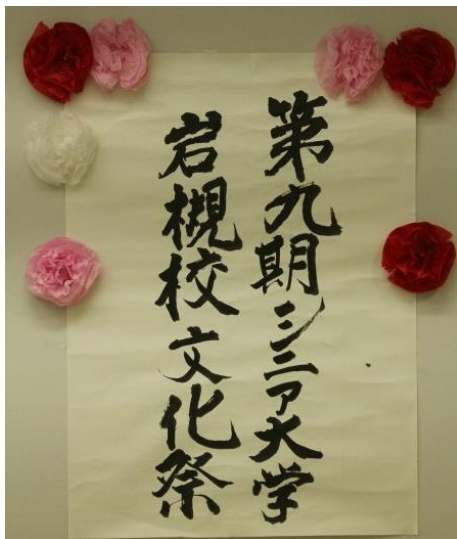 第九期シニア大学
岩槻校文化祭